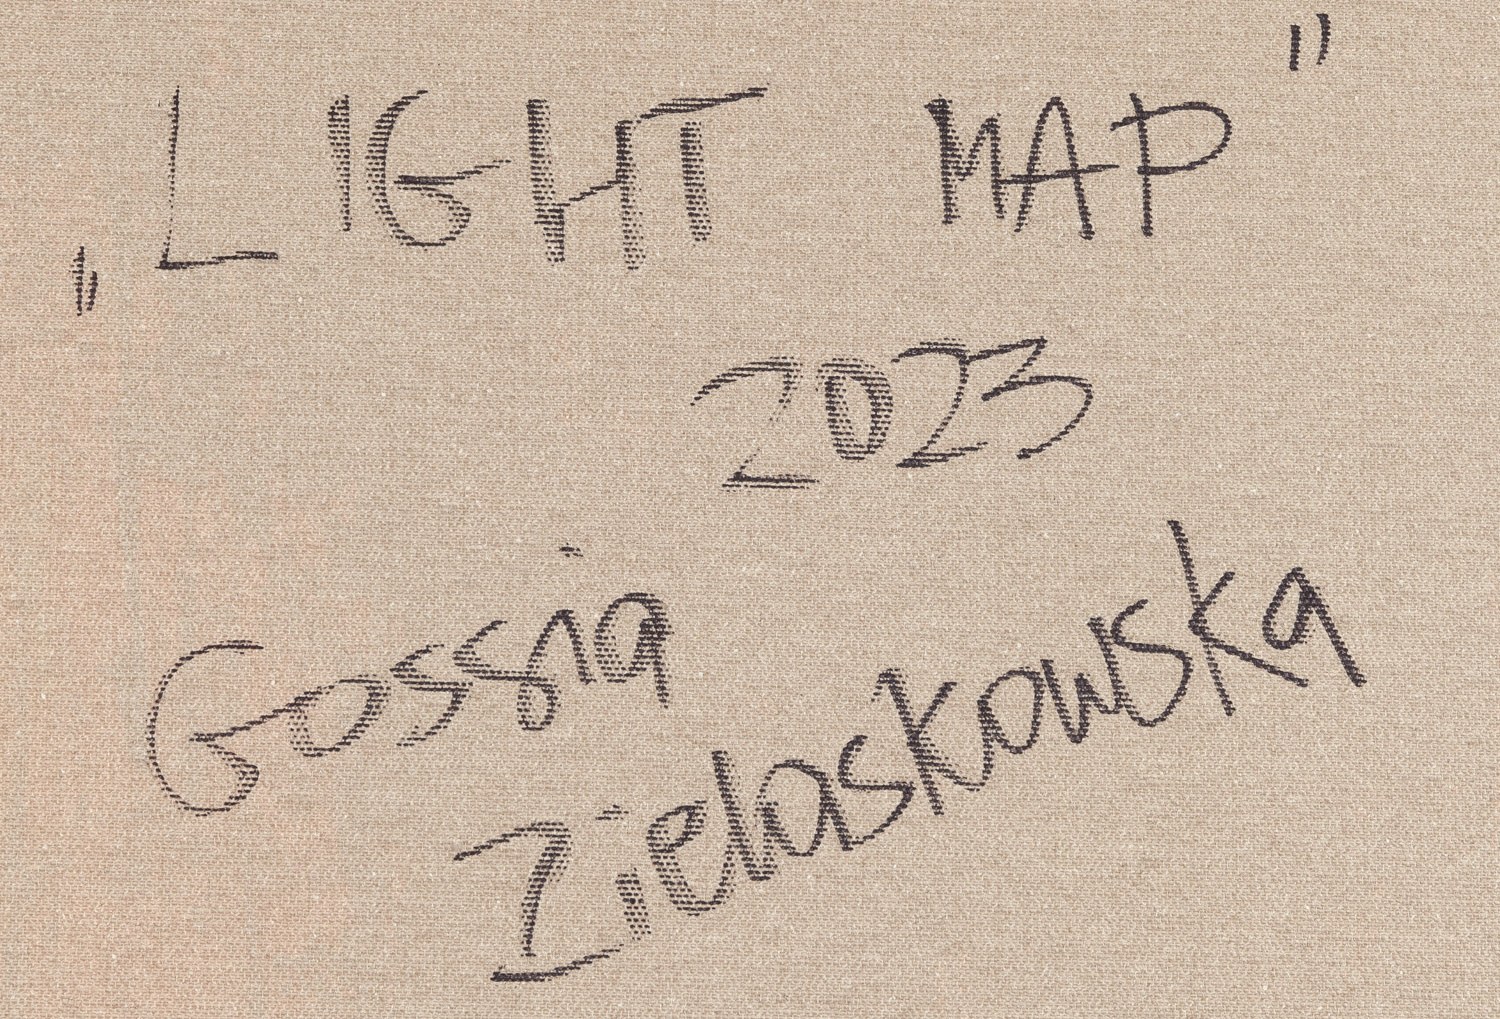 „LIGHT MAP"
2023
Gossia
Zielaskowska